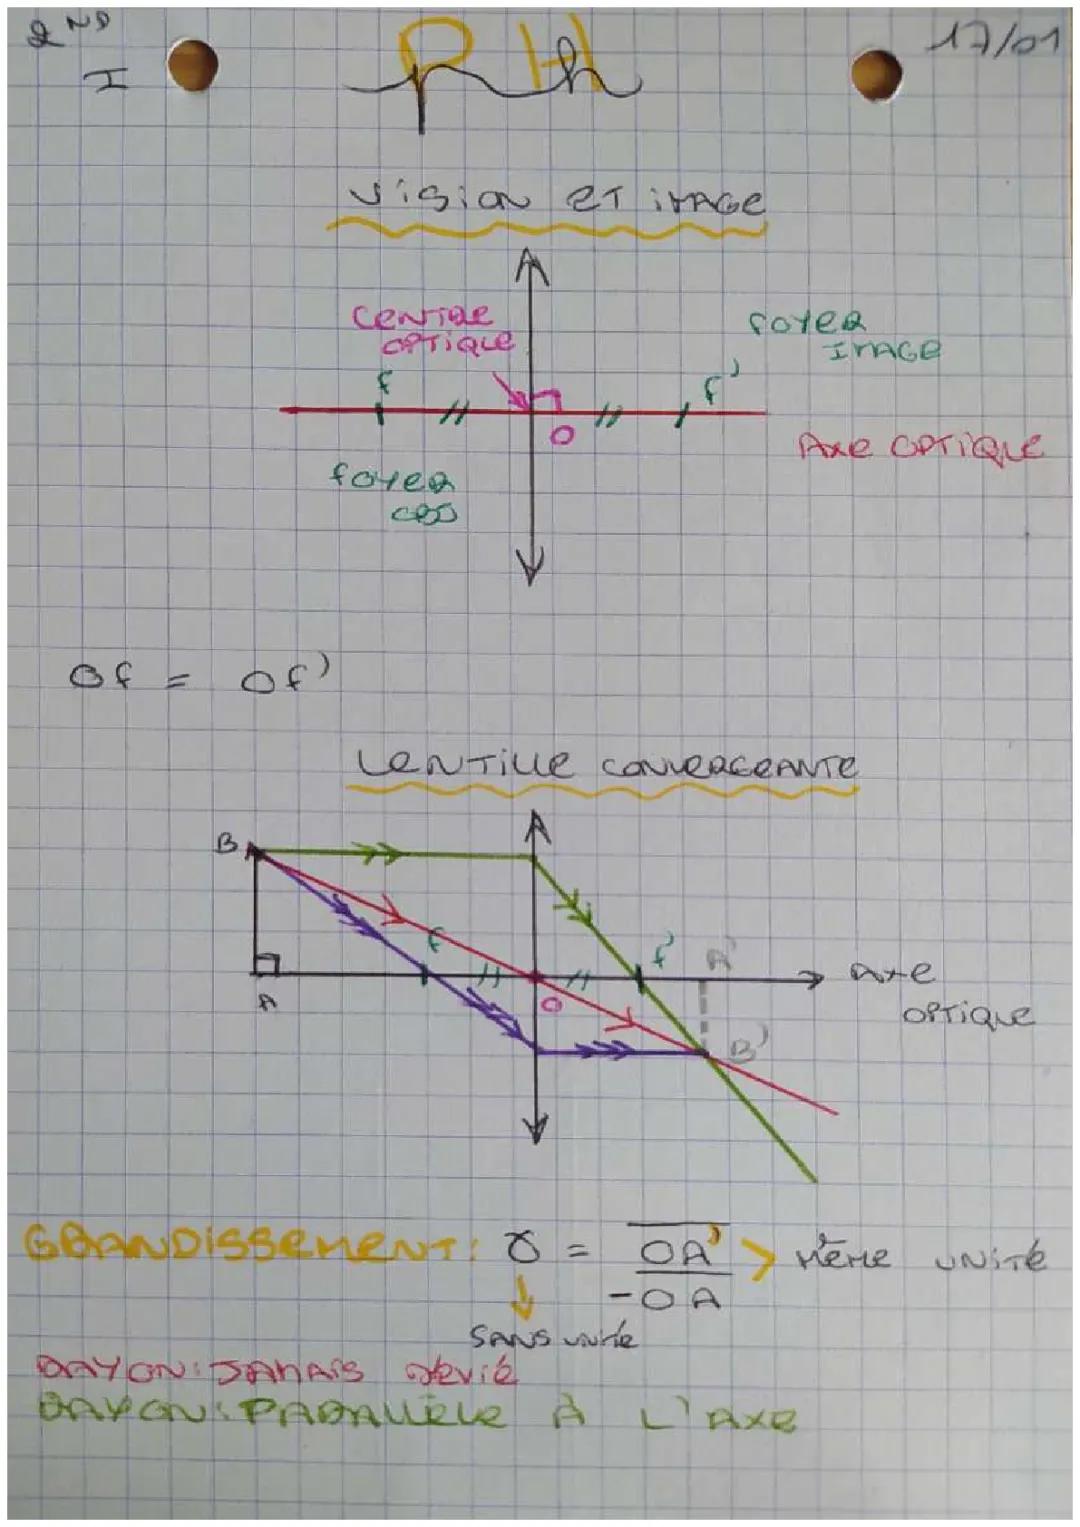 2ND
I
PH
ph
17/01
Vision et image
centre
optique
foyer
image
f
f'
O
Axe optique
foyer
Of = Of'
Lentille convergeante
B
f
f'
A'
axe
optique
A
O
B'
GRANDISSEMENT: γ = OA' > même unité
-OA
sans unité
Rayon: jamais dévié
Rayon: parallèle à l'axe